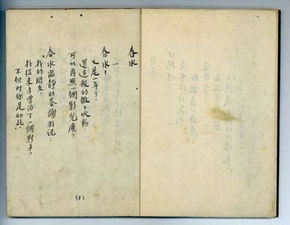 春水
一
春水!
又是一年了
還這般的微微吹動
可以再照一個影兒麼?
春水溫靜的答謝我說:
我的朋友!
我從來未曾留下一個影子,
不但對你是如此。
(1)